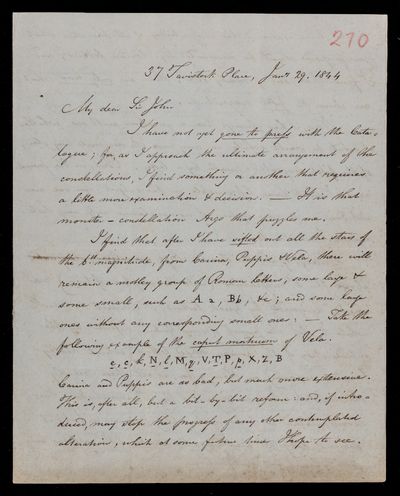 270
37 Tavistock Place, Jany 29. 1844
My dear Sir John
I have not yet gone to press with the Cata-
logue; for, as I approach the ultimate arrangement of the
constellations, I find something or another that requires
a little more examination & decision. — It is that
monster-constellation Argo that puzzles me.
I find that after I have sifted out all the stars of
the 6th magnitude, from Carina, Puppis & Vela, there will
remain a motley group of Roman letters; some large &
some small, such as A a, Bb, &c; and some large
ones without any corresponding small ones: — Take the
following example of the caput mortuum of Vela.
e, c, k, N, l, M, q, V, T, P, p, X, Z, B
Carina and Puppis are as bad, but much more extensive.
This is, after all, but a bit-by-bit reform: and, if intro-
duced, may stop the progress of any other contemplated
alteration, which at some future time I hope to see.